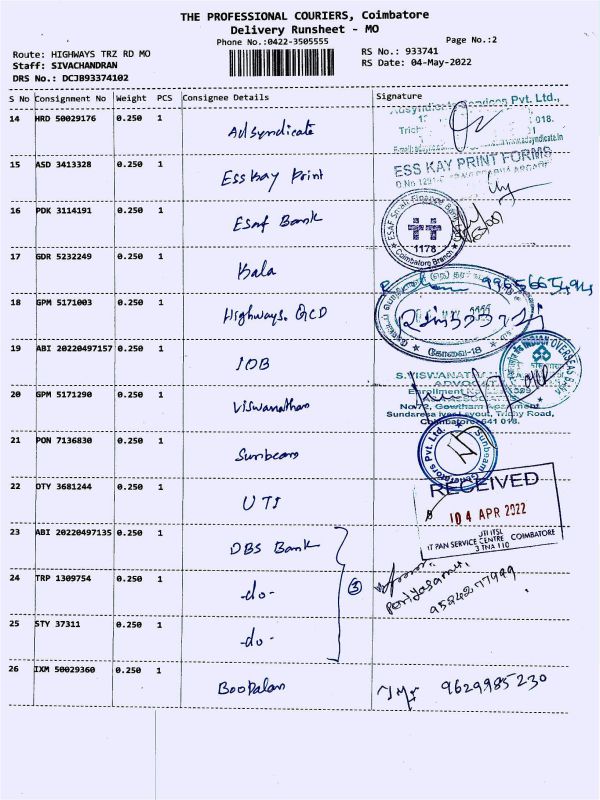 THE PROFESSIONAL COURIERS, Coimbatore
Delivery Runsheet - MO
Phone No.:0422-3505555
Page No.:2
Route: HIGHWAYS TRZ RD MO
RS No.: 933741
Staff: SIVACHANDRAN
RS Date: 04-May-2022
DRS No.: DCJB93374102
S No Consignment No Weight PCS Consignee Details Signature
14 HRD 50029176 0.250 1 Adsyndicate
Pvt. Ltd.,
018.
Trich
15 ASD 3413328 0.250 1 Ess Kay Print
ESS KAY PRINT FORMS
16 PDK 3114191 0.250 1 Esaf Bank
ESAF Small Finance Bank
1178
Coimbatore Branch
17 GDR 5232249 0.250 1 Kala
18 GPM 5171003 0.250 1 Highways. QCD
கோவை-18
19 ABI 20220497157 0.250 1 IOB
INDIAN OVERSEAS BANK
20 GPM 5171290 0.250 1 Viswanathan
S.VISWANATH
ADVOCAT
Enrollment N
No/72, Gowtham Apartment
Sundaresa Iyer Layout, Trichy Road,
Coimbatore-641 018.
21 PON 7136830 0.250 1 Sunbeam
Sunbeam Generators Pvt. Ltd.
22 OTY 3681244 0.250 1 UTI
RECEIVED
04 APR 2022
IT PAN SERVICE CENTRE COIMBATORE
23 ABI 20220497135 0.250 1 DBS Bank
24 TRP 1309754 0.250 1 -do-
3
Periyasamy.
9524277999
25 STY 37311 0.250 1 -do-
26 IXM 50029360 0.250 1 Boopalan
9629985230